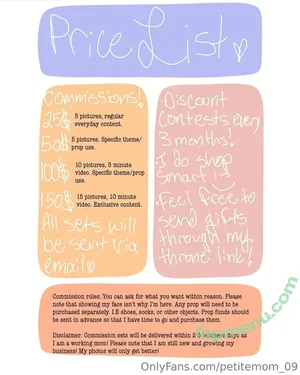 Price List
Commissions!
25$ 5 pictures, regular
everyday content.
50$ 5 pictures. Specific theme/
prop use.
100$ 10 pictures, 5 minute
video. Specific theme/prop
use.
150$ 15 pictures, 10 minute
video. Exclusive content.
All sets will
be sent via
email
Discount
Contests every
3 months!
I do shop
smart!
Feel free to
send gifts
through my
throne link!
Commission rules: You can ask for what you want within reason. Please
note that showing my face isn't why I'm here. Any prop will need to be
purchased separately. I.E shoes, socks, or other objects. Prop funds should
be sent in advance so that I have time to go and purchase them.
Disclaimer: Commission sets will be delivered within 2-3 business days as
I am a working mom! Please note that I am still new and growing my
business! My photos will only get better!
OnlyFans.com/petitemom_09